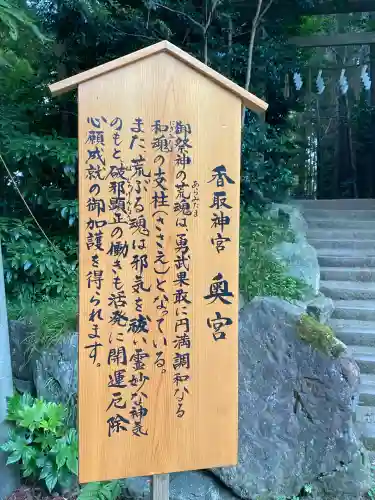 香取神宮 奥宮
御祭神の荒魂は、勇武果敢に円満調和なる
あらみたま
和魂の支柱(ささえ)となっている。
また、荒ぶる魂は、邪気を祓い霊妙な神気
のもと破邪顕正の働きも活発に開運厄除
心願成就の御加護を得られます。